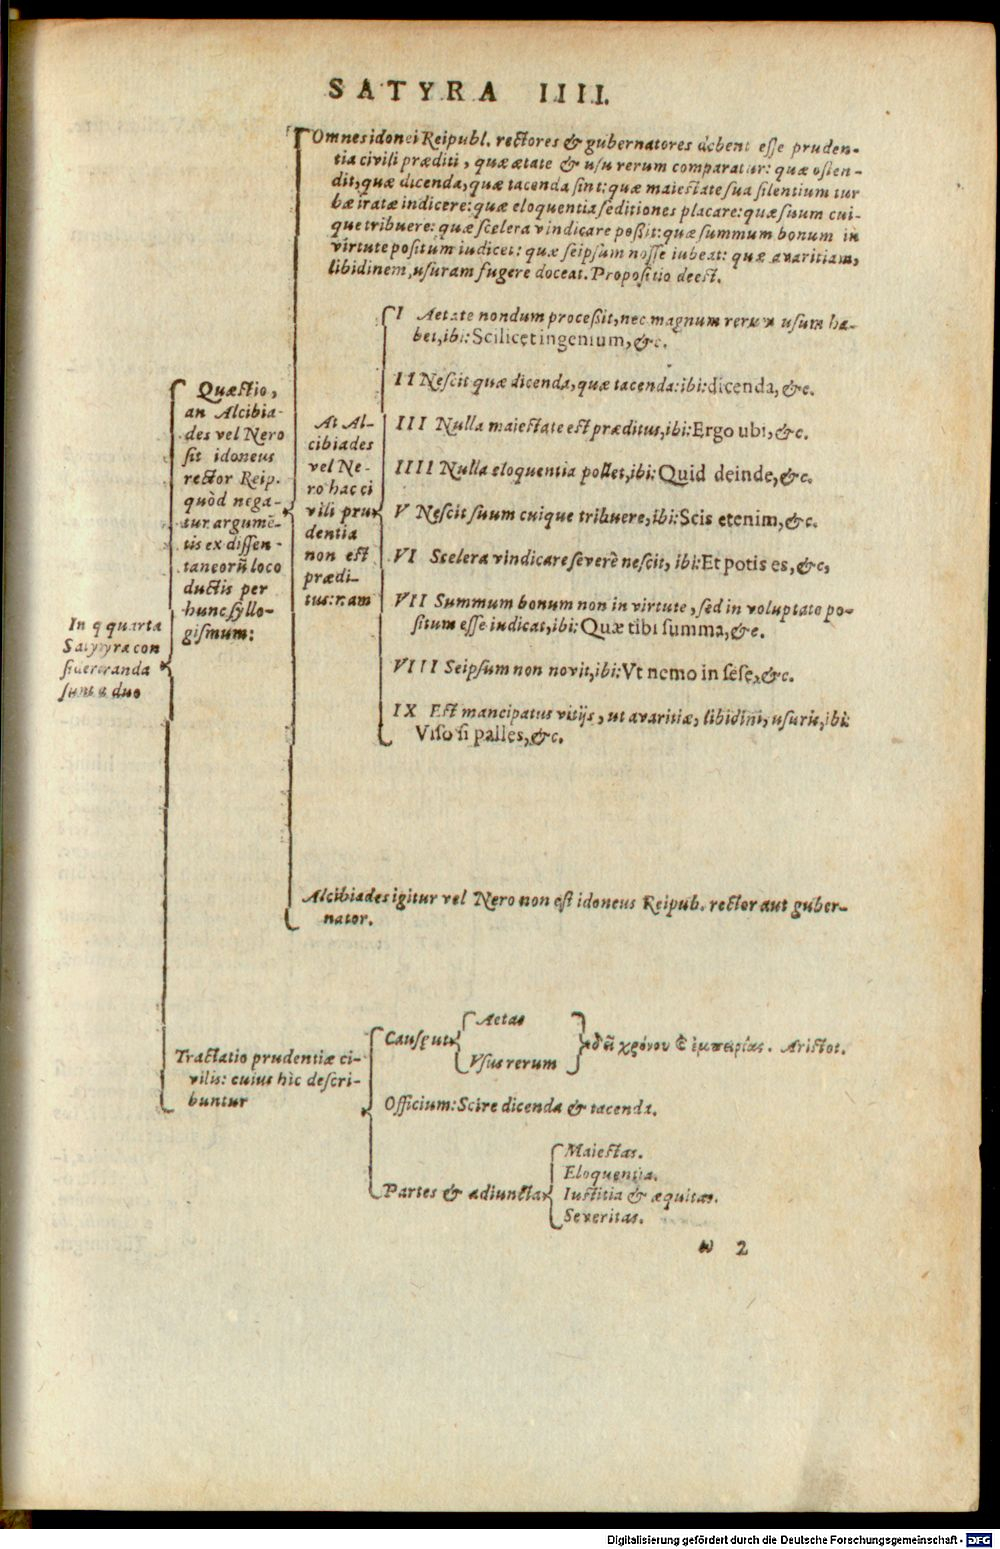 SATYRA IIII.
Omnes idonei Reipubl. rectores & gubernatores debent esse pruden-
tia civili præditi, quæ ætate & usu rerum comparatur: quæ osten-
dit, quæ dicenda, quæ tacenda sint: quæ maiestate sua silentium tur
bæ iratæ indicere: quæ eloquentia seditiones placare: quæ suum cui-
que tribuere: quæ scelera vindicare poßit: quæ summum bonum in
virtute positum iudicet: quæ seipsum nosse iubeat: quæ avaritiam,
libidinem, usuram fugere doceat. Propositio deest.
I Aetate nondum proceßit, nec magnum rerum usum ha-
bet, ibi: Scilicet ingenium, &c.
II Nescit quæ dicenda, quæ tacenda: ibi: dicenda, &c.
III Nulla maiestate est præditus, ibi: Ergo ubi, &c.
IIII Nulla eloquentia pollet, ibi: Quid deinde, &c.
V Nescit suum cuique tribuere, ibi: Scis etenim, &c.
VI Scelera vindicare severè nescit, ibi: Et potis es, &c,
VII Summum bonum non in virtute, sed in voluptate po-
situm esse indicat, ibi: Quæ tibi summa, &c.
VIII Seipsum non novit, ibi: Vt nemo in sese, &c.
IX Est mancipatus vitijs, ut avaritiæ, libidini, usuris, ibi:
Viso si palles, &c.
Quæstio,
an Alcibia-
des vel Nero
sit idoneus
rector Reip.
quòd nega-
tur argumē-
tis ex dissen-
taneorū loco
ductis per
hunc syllo-
gismum:
At Al-
cibiades
vel Ne-
ro hac ci
vili pru
dentia
non est
prædi-
tus: nam
In q quarta
Satyyra con
sidereranda
sunt a duo
Alcibiades igitur vel Nero non est idoneus Reipub. rector aut guber-
nator.
Tractatio prudentiæ ci-
vilis: cuius hîc descri-
buntur
Causę ut
Aetas
Vsus rerum
χρόνου ἐμπειρίας. Aristot.
Officium: Scire dicenda & tacenda.
Partes & adiuncta
Maiestas.
Eloquentia.
Iustitia & æquitas.
Severitas.
2
Digitalisierung gefördert durch die Deutsche Forschungsgemeinschaft - DFG